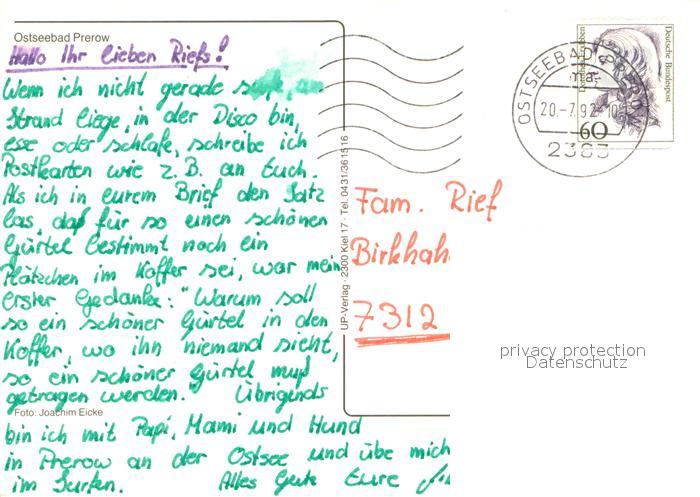 Ostseebad Prerow
Hallo Ihr lieben Riefs!
Wenn ich nicht gerade am
Strand liege, in der Disco bin,
esse oder schlafe, schreibe ich
Postkarten wie z.B. an Euch.
Als ich in eurem Brief den Satz
las, daß für so einen schönen
Gürtel bestimmt noch ein
Plätzchen im Koffer sei, war mein
erster Gedanke: "Warum soll
so ein schöner Gürtel in den
Koffer, wo ihn niemand sieht,
so ein schöner Gürtel muß
getragen werden." Übrigends
Foto: Joachim Eicke
bin ich mit Papi, Mami und Hund
in Prerow an der Ostsee und übe mich
im Surfen. Alles Gute Eure
UP-Verlag · 2300 Kiel 17 · Tel. 0431/361516
Deutsche Bundespost
60
OSTSEEBAD PREROW
20.-7.92-10
2383
Fam. Rief
Birkhah
7312
privacy protection
Datenschutz